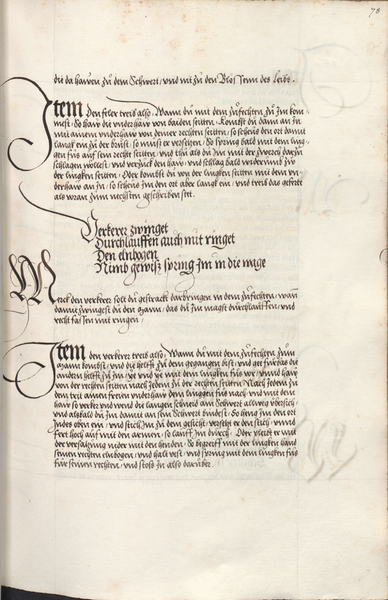 78
die da hawen zu dem Schwert / und nit zu den Blossenn des leibs .
Item Den feler treib also / Wann du mit dem zufechten zu Im kom-
mst / So haw die underhaw von baiden seitten / Kombst du dann an In
mit ainem underhaw von deiner rechten seitten / so scheus den ort damit
langk ein zu der brust / so muest er versetzen / So spring bald mit dem lin-
gen fus auf sein rechte seitten / und thu als du In mit der zwerch darzu
schlagen woltest / und verzuck den haw / und schlag bald widerumb zu
der lingken seitten / Oder kombst du von der lingken seitten mit dem un-
derhaw an In / so scheus Im den ort aber langk ein / und treib das gefert
als voran zum nechsten geschriben stet .
Verkerer zwinget
Durchlauffen auch mit ringet
Den elnbogen
Nimb gewisz spring Im in die wage
Merck den verkerer solt du gestracks darbringen in dem zufechten / wan
damit zwingest du den mann / das du In magst durchlauffen / und
recht fassen mit ringen /
Item den verkerer treib also / Wann du mit dem zufechten zum
mann kombst / und die helfft zu Im gegangen bist / und get fur bas die
andern helfft zu Im / ye und ye mit dem lingken fus vor / und haw
von der rechten seitten nach Jedem zu der rechten seitten / Nach Jedem zu
dem trit ainen freien underhaw dem lingken fus nach / und mit dem
haw so verker und wend die langen schneid am Schwert allweg ubersich /
und alsbald du Im damit an sein Schwert bindest / So heng Im den ort
Indes oben ein / und stich Im zu dem gesicht / versetzt er den stich / und
fert hoch auf mit den armen / so lauff Im durch / Oder pleibt er mit
der versatzung nider mit den henden / So begreiff mit der lingken hand
seinen rechten einbogen / und halt vest / und spring mit dem lingken fus
fur seinen rechten / und stoss In also daruber .